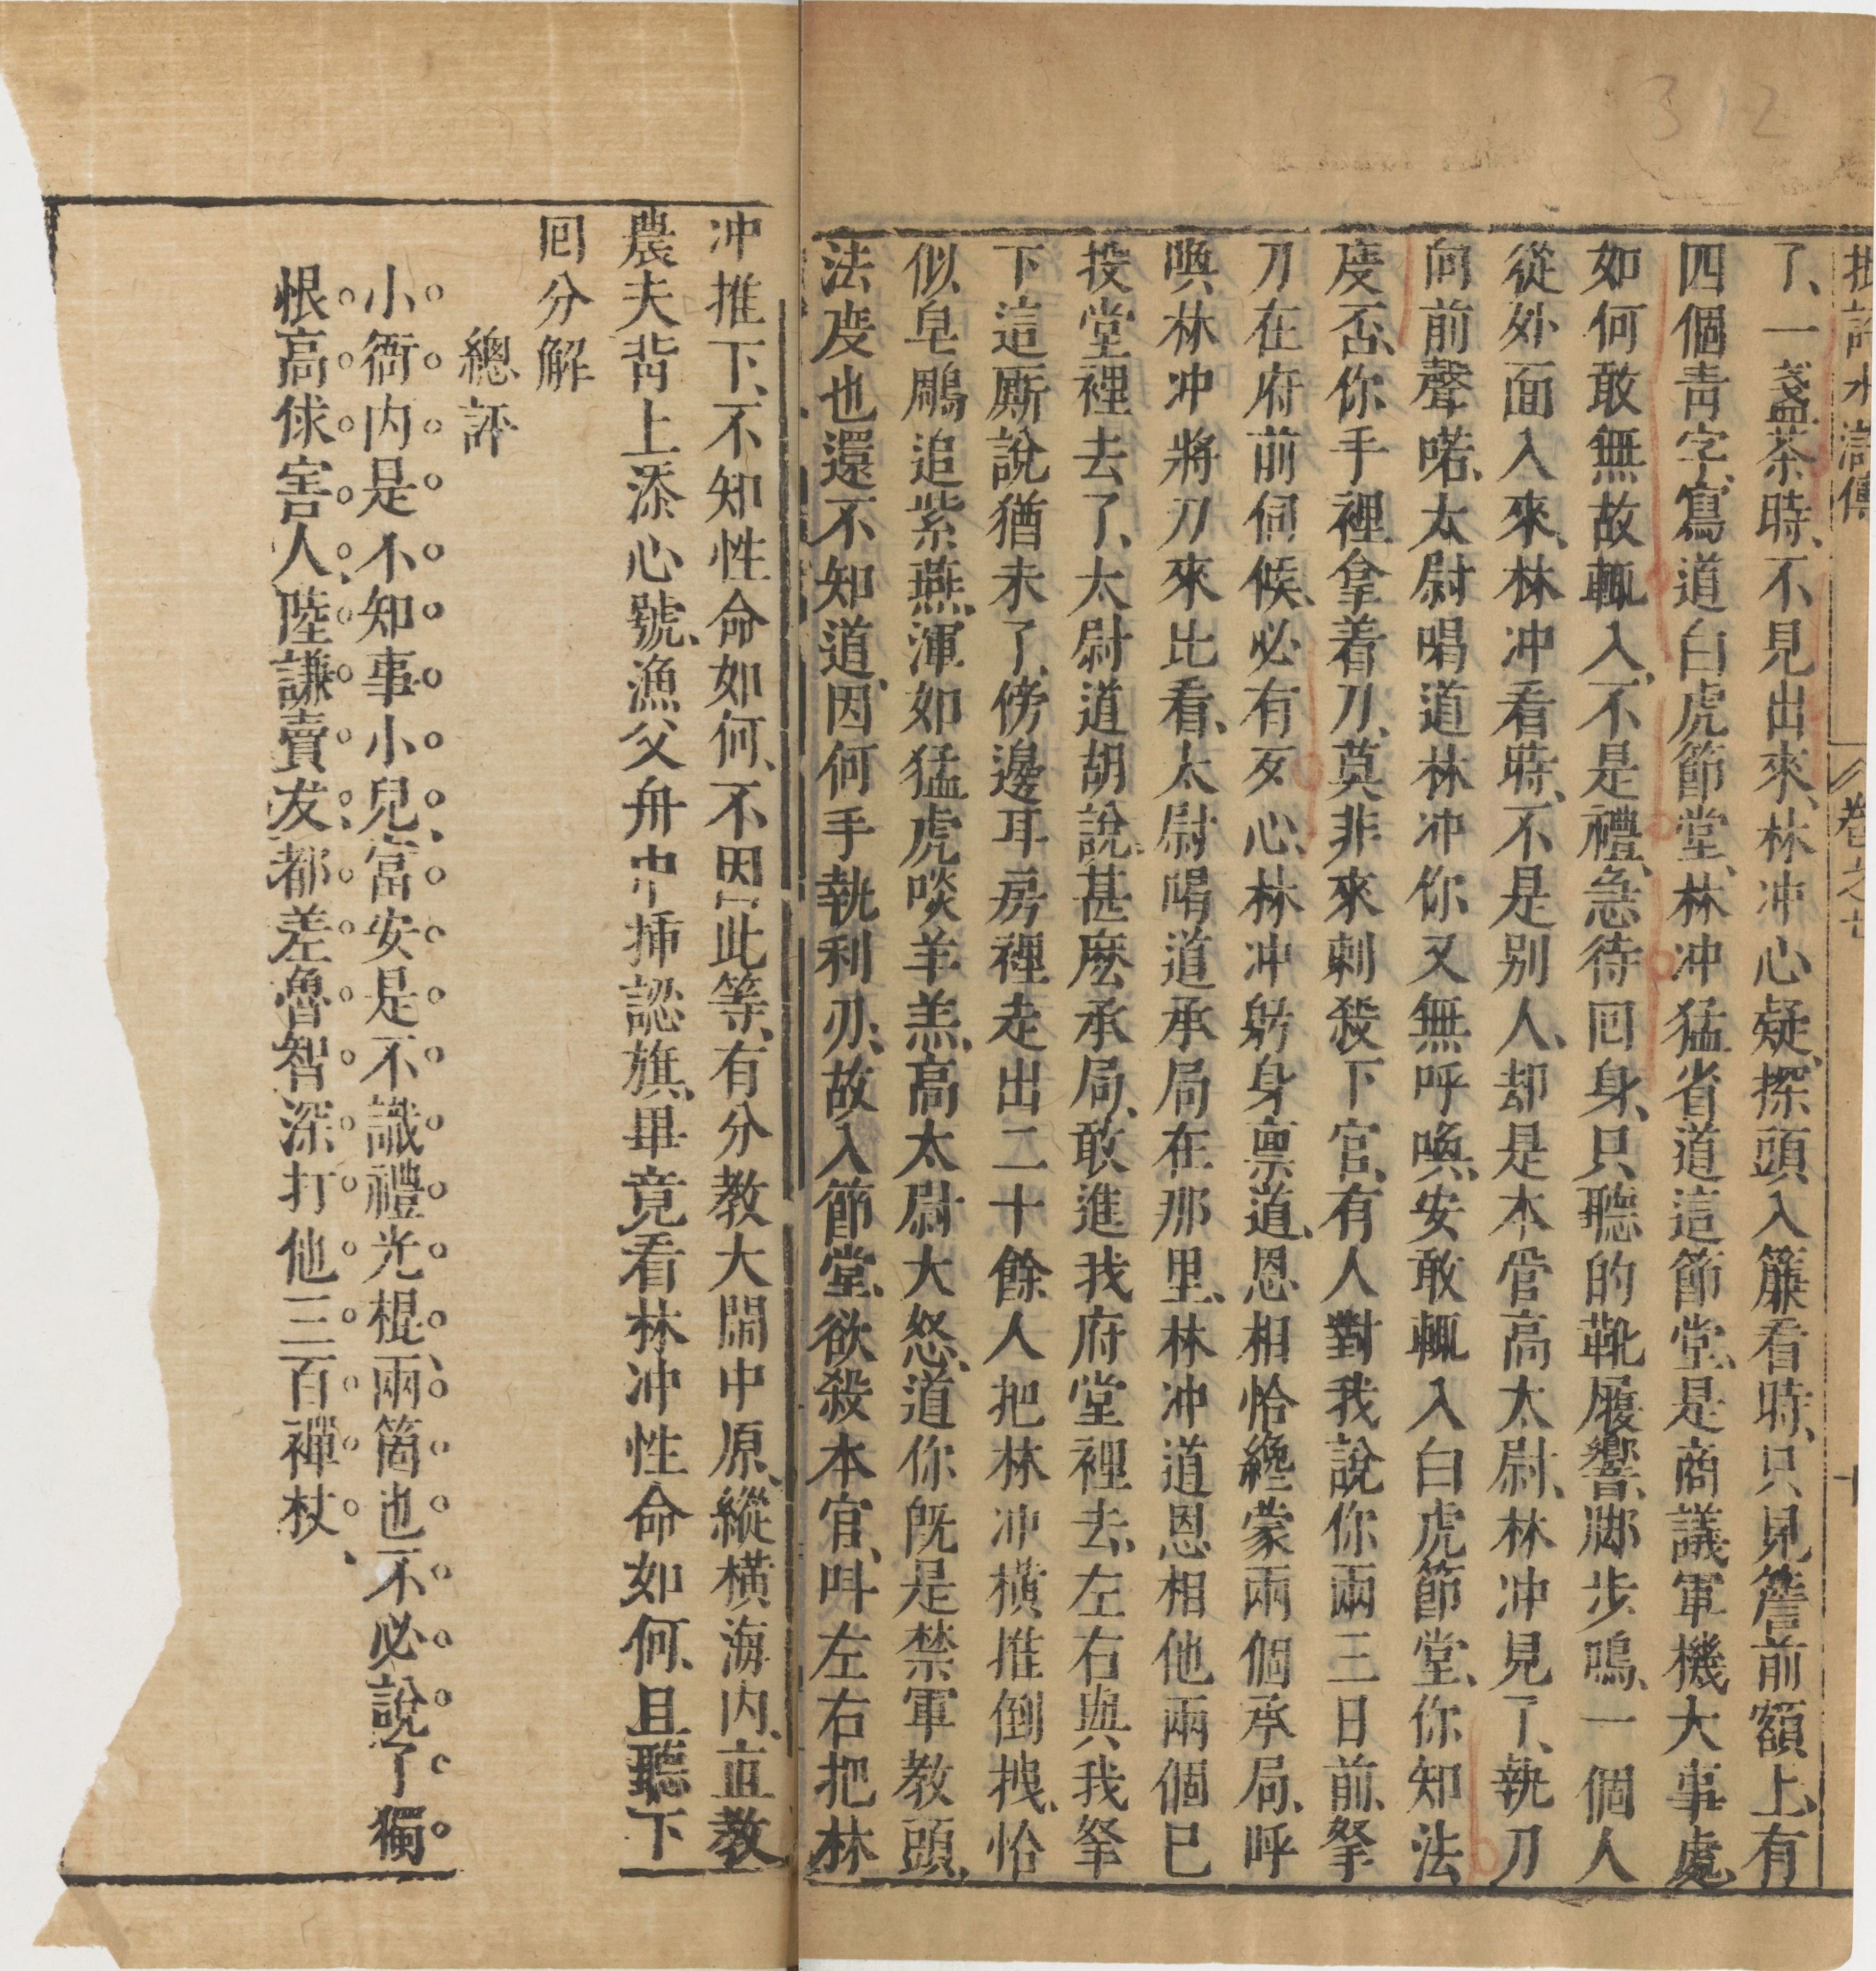 批評水滸傳 卷之七 十
了、一盞茶時、不見出來、林冲心疑、探頭入簾看時、只見簷前額上、有
四個青字、寫道白虎節堂、林冲猛省道這節堂、是商議軍機大事處、
如何敢無故輒入、不是禮、急待回身、只聽的靴履響、脚步鳴、一個人
從外面入來、林冲看時、不是別人、却是本管高太尉、林冲見了、執刀
向前聲喏、太尉喝道林冲你又無呼喚、安敢輒入白虎節堂、你知法
度否、你手裡拿着刀、莫非來刺殺下官、有人對我說你兩三日前、拏
刀在府前伺候、必有歹心、林冲躬身禀道、恩相恰纔蒙兩個承局、呼
喚林冲將刀來比看、太尉喝道承局在那里、林冲道恩相他兩個已
投堂裡去了、太尉道胡說、甚麽承局、敢進我府堂裡去、左右與我拏
下這厮說猶未了、傍邊耳房裡走出二十餘人把林冲橫推倒拽、恰
似皂鵰追紫燕、渾如猛虎啖羊羔、高太尉大怒、道你既是禁軍教頭、
法度也還不知道、因何手執利刃、故入節堂、欲殺本官、呌左右把林
冲推下、不知性命如何、不因此等、有分教大閙中原、縱橫海内、直教
農夫背上添心號、漁父舟中揷認旗、畢竟看林冲性命如何、且聽下
回分解
總評
小衙内是不知事小兒、富安是不識禮光棍、兩箇也不必說了獨
恨高俅害人、陸謙賣友、都差魯智深打他三百禪杖、
312